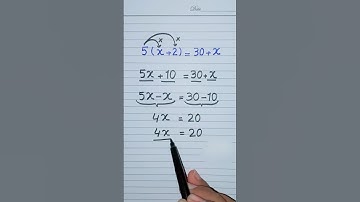 x x
5(x+2)=30+x
5x+10 = 30+x
5x-x = 30-10
4x = 20
4x = 20